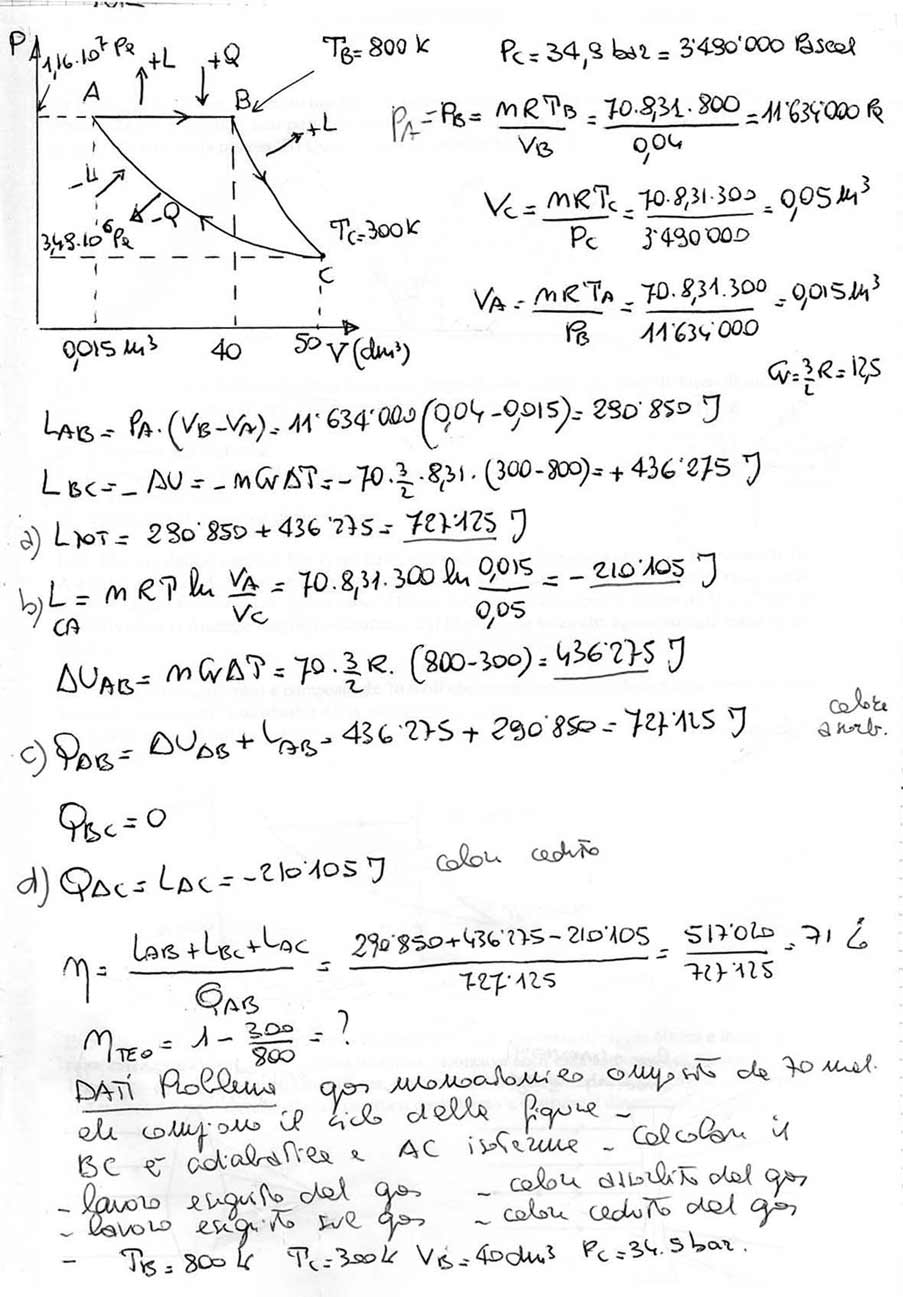 P
1,16.10⁷ Pa
+L
+Q
T_B = 800 K
P_C = 34,9 bar = 3'490'000 Pascal
A
B
P_A = P_B = mRT_B / V_B = 70.8,31.800 / 0,04 = 11'634'000 Pa
+L
-L
-Q
V_C = mRT_C / P_C = 70.8,31.300 / 3'490'000 = 0,05 m³
T_C = 300 K
3,49.10⁶ Pa
C
V_A = mRT_A / P_B = 70.8,31.300 / 11'634'000 = 0,015 m³
0,015 m³ 40 50 V (dm³)
Cv = 3/2 R = 12,5
L_AB = P_A . (V_B - V_A) = 11'634'000 (0,04 - 0,015) = 290'850 J
L_BC = - ΔU = - m Cv ΔT = - 70 . 3/2 . 8,31 . (300 - 800) = + 436'275 J
a) L_TOT = 290'850 + 436'275 = 727'125 J
b) L_CA = mRT ln V_A / V_C = 70.8,31.300 ln 0,015 / 0,05 = - 210'105 J
ΔU_AB = m Cv ΔT = 70 . 3/2 R . (800 - 300) = 436'275 J
c) Q_AB = ΔU_AB + L_AB = 436'275 + 290'850 = 727'125 J calore assorb.
Q_BC = 0
d) Q_AC = L_AC = - 210'105 J calore ceduto
η = L_AB + L_BC + L_AC / Q_AB = 290'850 + 436'275 - 210'105 / 727'125 = 517'020 / 727'125 = 71 %
η_TEO = 1 - 300 / 800 = ?
DATI Problema gas monoatomico composto da 70 mol.
che compiono il ciclo della figura -
BC è adiabatica e AC isoterma - Calcolare il
- lavoro eseguito dal gas - calore assorbito dal gas
- lavoro eseguito sul gas - calore ceduto dal gas
- T_B = 800 K T_C = 300 K V_B = 40 dm³ P_C = 34.9 bar.